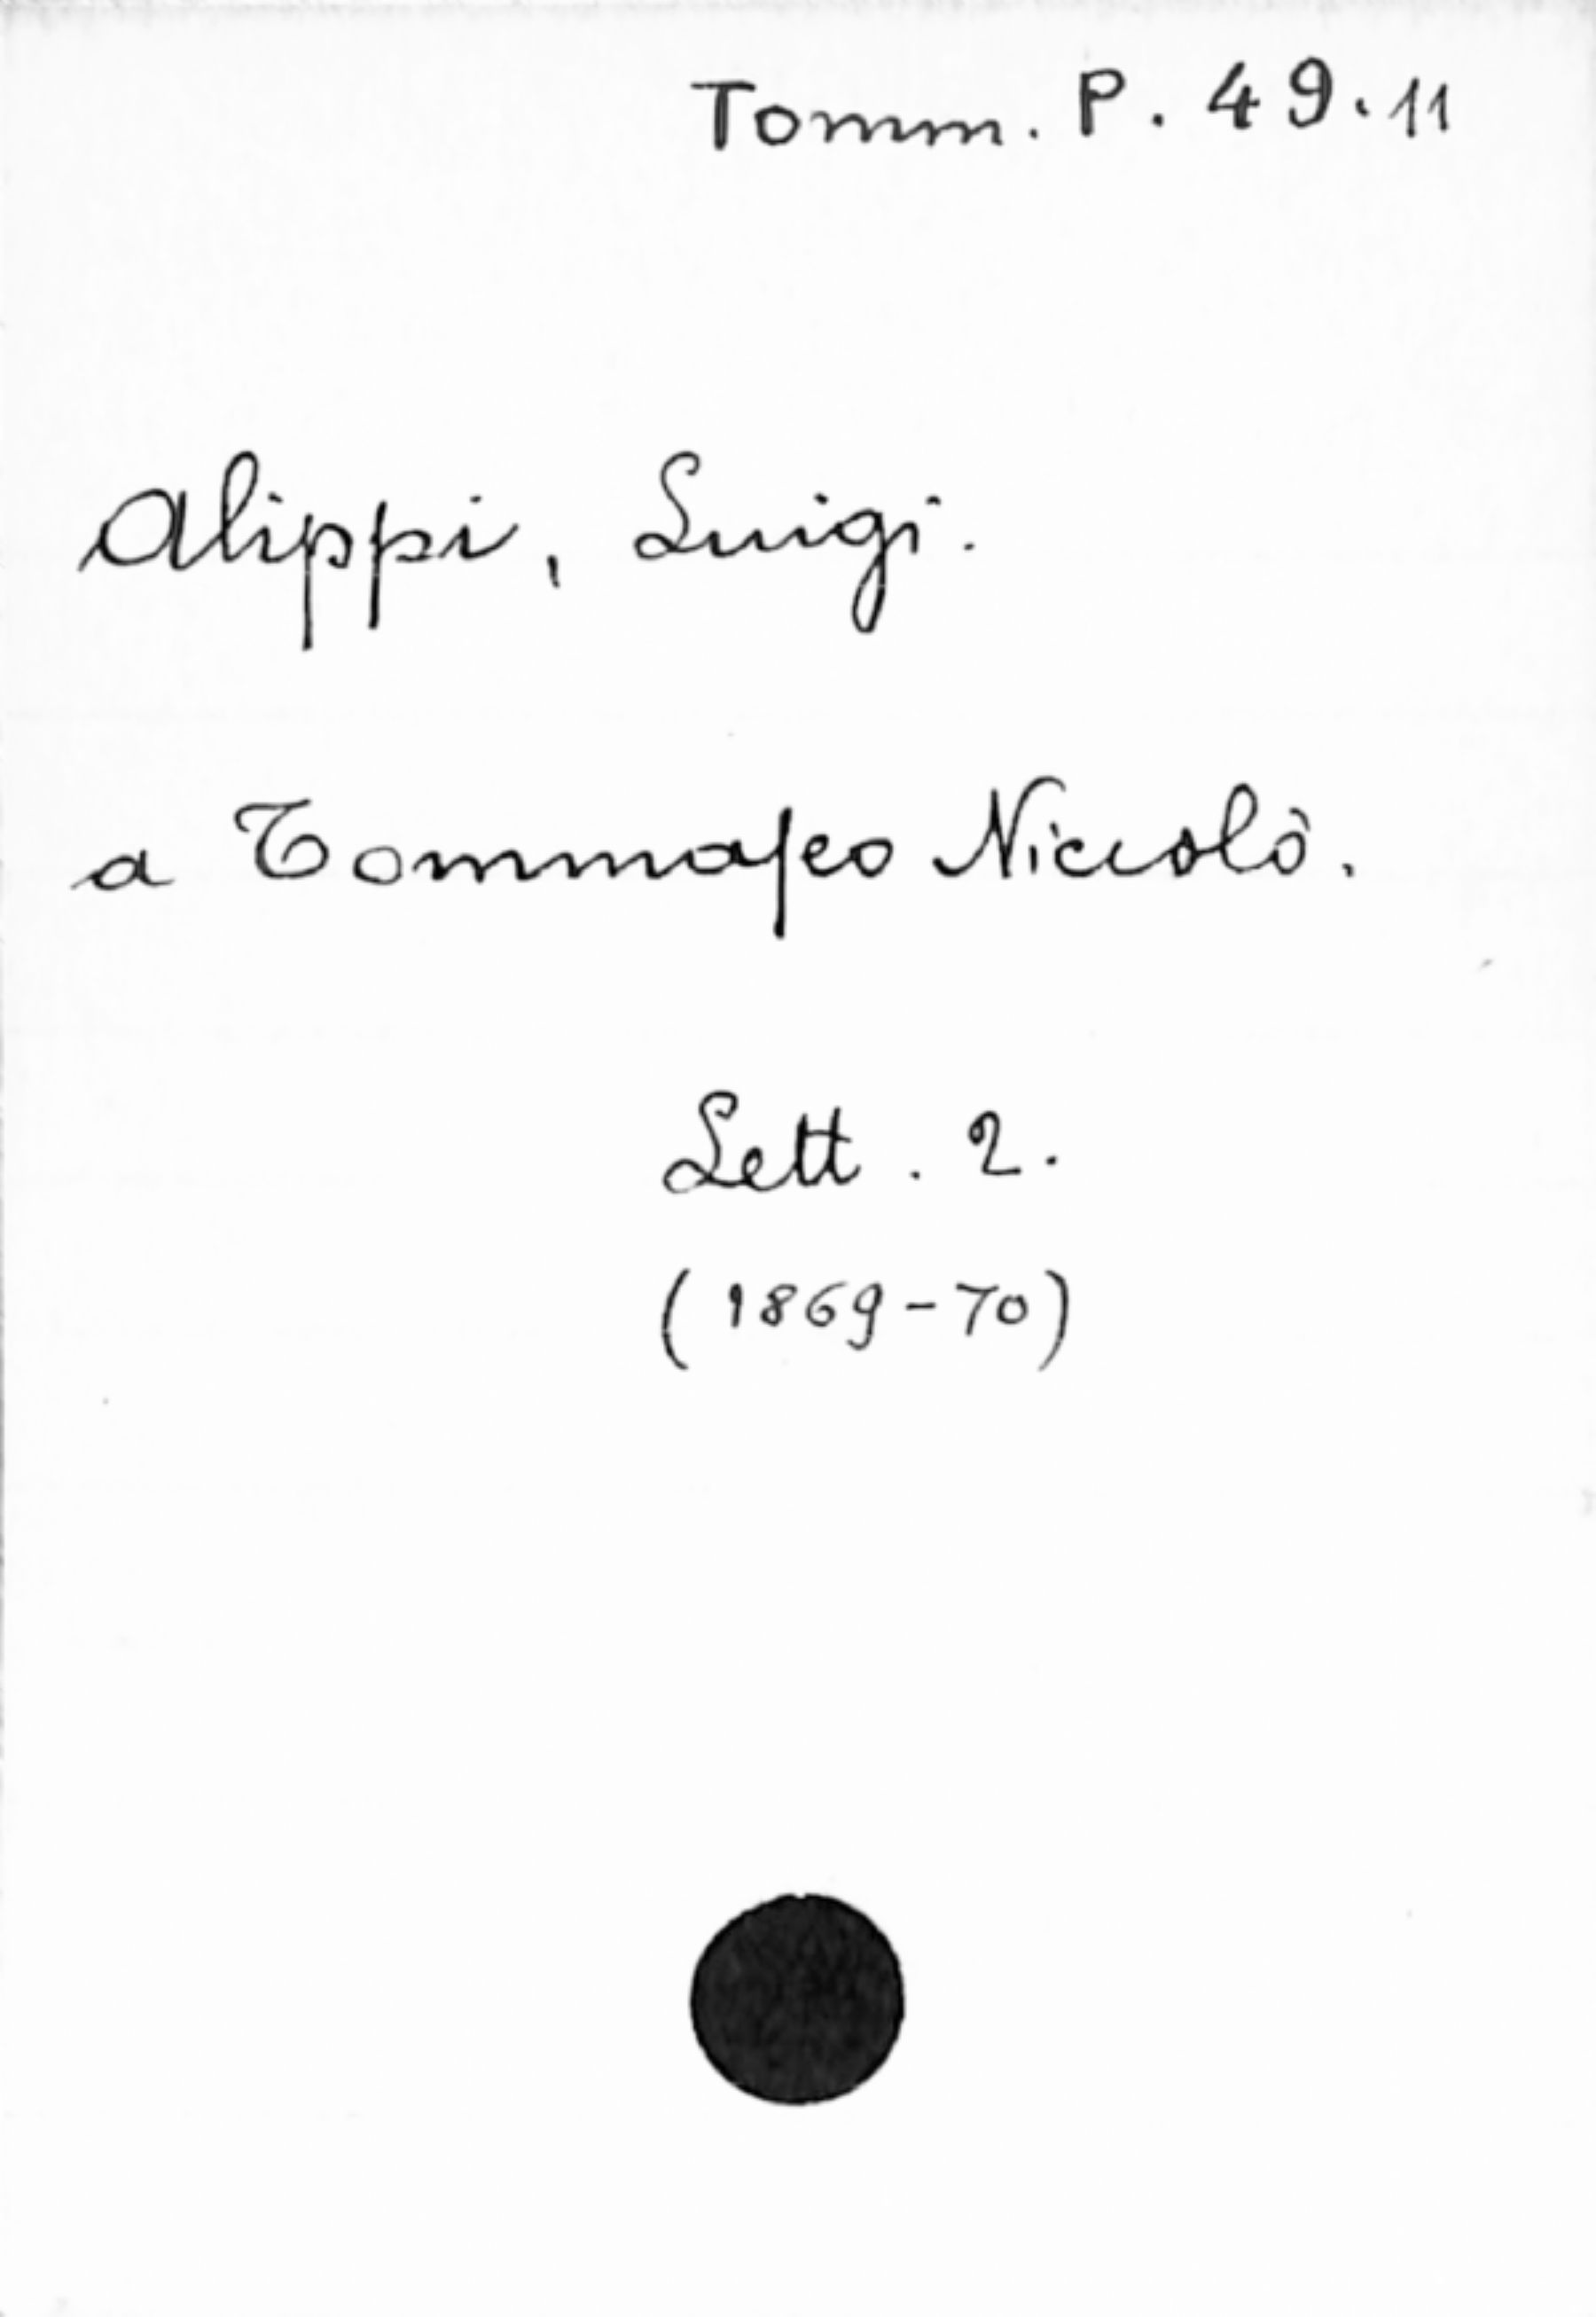 Tomm. P. 49.11
Alippi, Luigi.
a Tommaseo Niccolò.
Lett. 2.
(1869-70)